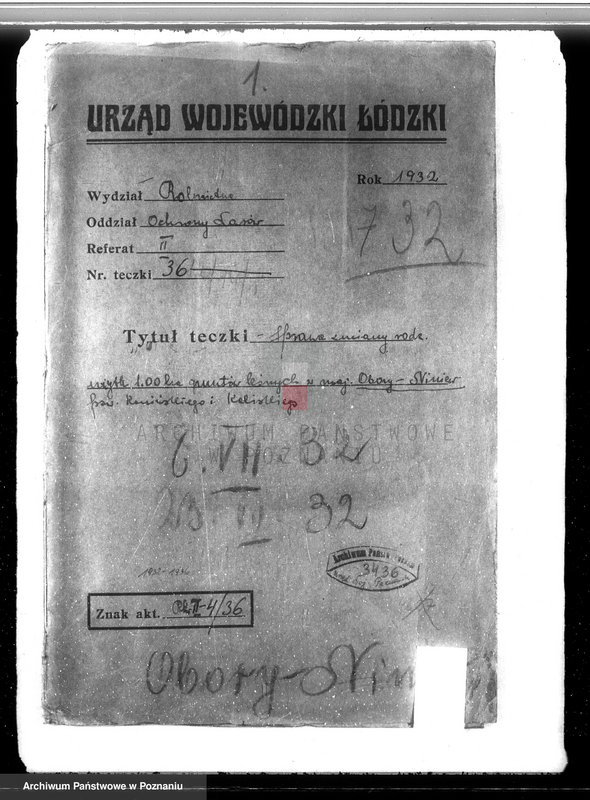 1.
URZĄD WOJEWÓDZKI ŁÓDZKI
Rok 1932
Wydział Rolnictwa
Oddział Ochrony Lasów
Referat II
Nr. teczki 36
732
Tytuł teczki - Sprawa zmiany rodz.
użytk. 1.00 ha gruntów leśnych w maj. Obory-Niniew
pow. Konińskiego i Kaliskiego
ARCHIWUM PAŃSTWOWE
W POZNANIU
6.VII 32
23.VII 32
Archiwum Państwowe
3436
1932-1936
Znak akt. II-4/36
Obory-Nin
Archiwum Państwowe w Poznaniu